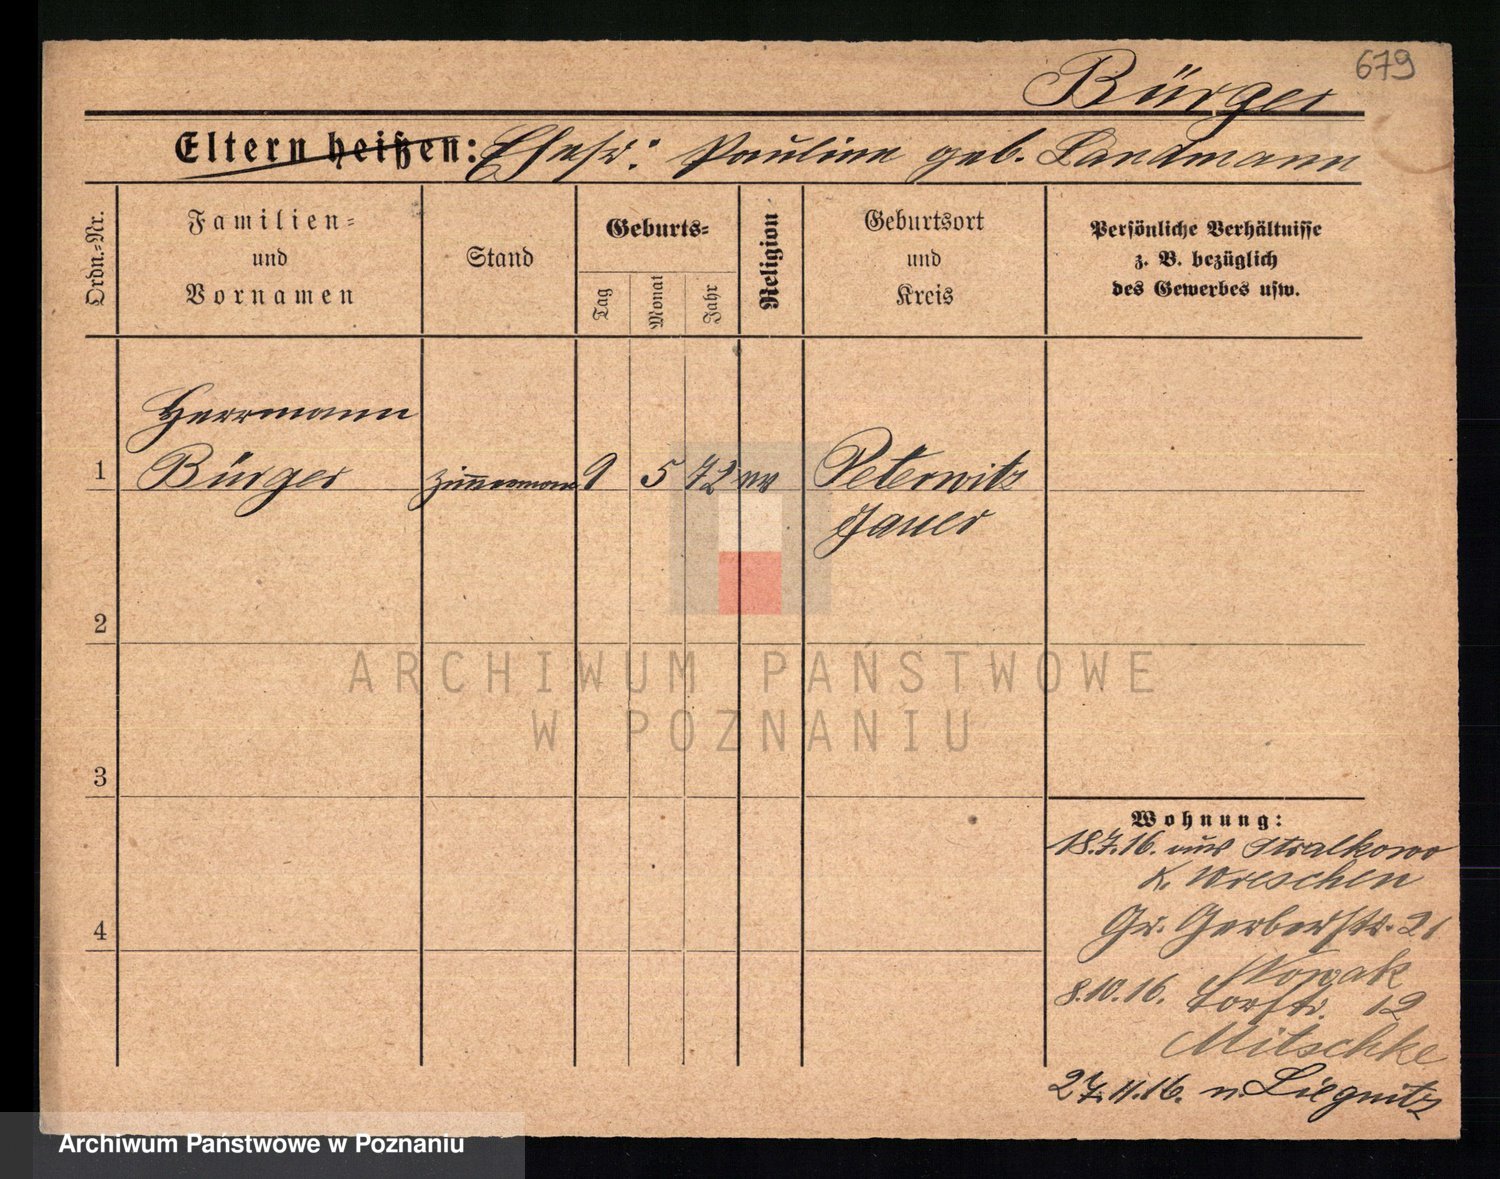 679
Bürger
Eltern heißen: Ehefr: Pauline geb. Landmann
Ordn.=Nr.
Familien=
und
Vornamen
Stand
Geburts=
Tag
Monat
Jahr
Religion
Geburtsort
und
Kreis
Persönliche Verhältnisse
z. B. bezüglich
des Gewerbes usw.
Herrmann
1 Bürger Zimmermann 9 5 72 ev Peterwitz
Jauer
2
ARCHIWUM PAŃSTWOWE
W POZNANIU
3
Wohnung:
18.7.16. aus Stralkowo
K. Wreschen
4 Gr. Gerberstr. 21
Nowak
8.10.16. Torstr. 12
Mitschke
27.11.16. n. Liegnitz
Archiwum Państwowe w Poznaniu